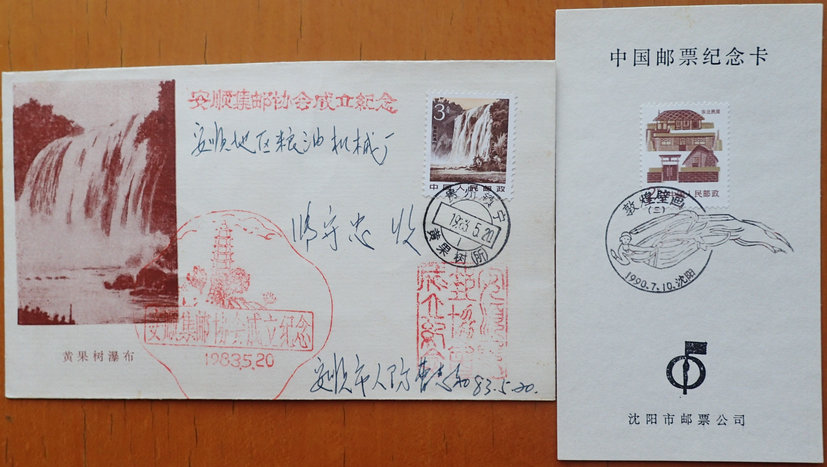 安顺集邮协会成立纪念
安顺地区粮油机械厂
收
3分
中国人民邮政
贵州镇宁
1983.5.20
1
黄果树(所)
安顺集邮协会成立纪念
1983.5.20
黄果树瀑布
安顺市人防
83.5.20.
中国邮票纪念卡
东北民居
中国人民邮政
敦煌壁画
(三)
1990.7.10.沈阳
沈阳市邮票公司